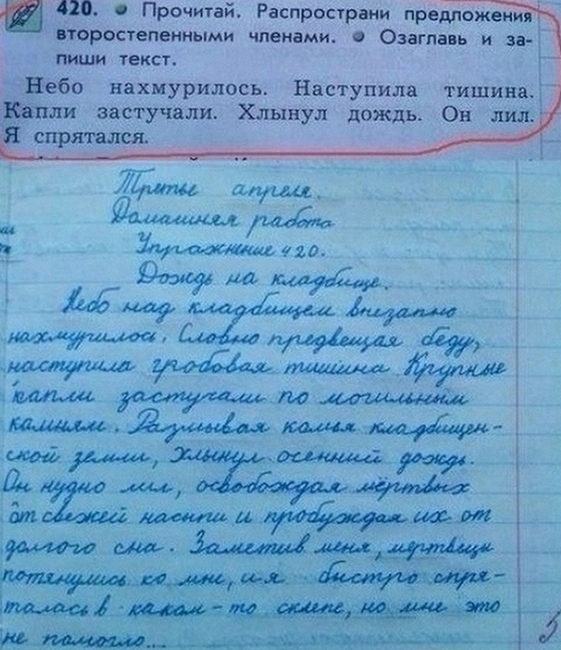 420. • Прочитай. Распространи предложения
второстепенными членами. • Озаглавь и за-
пиши текст.
Небо нахмурилось. Наступила тишина.
Капли застучали. Хлынул дождь. Он лил.
Я спрятался.
Третье апреля.
Домашняя работа
Упражнение 420.
Дождь на кладбище.
Небо над кладбищем внезапно
нахмурилось. Словно предвещая беду,
наступила гробовая тишина Крупные
капли застучали по могильным
камням. Размывая комья кладбищен-
ской земли, хлынул осенний дождь.
Он нудно лил, освобождая мёртвых
от свежей насыпи и пробуждая их от
долгого сна. Заметив меня, мертвецы
потянулись ко мне, и я быстро спря-
талась в каком-то склепе, но мне это
не помогло...
5